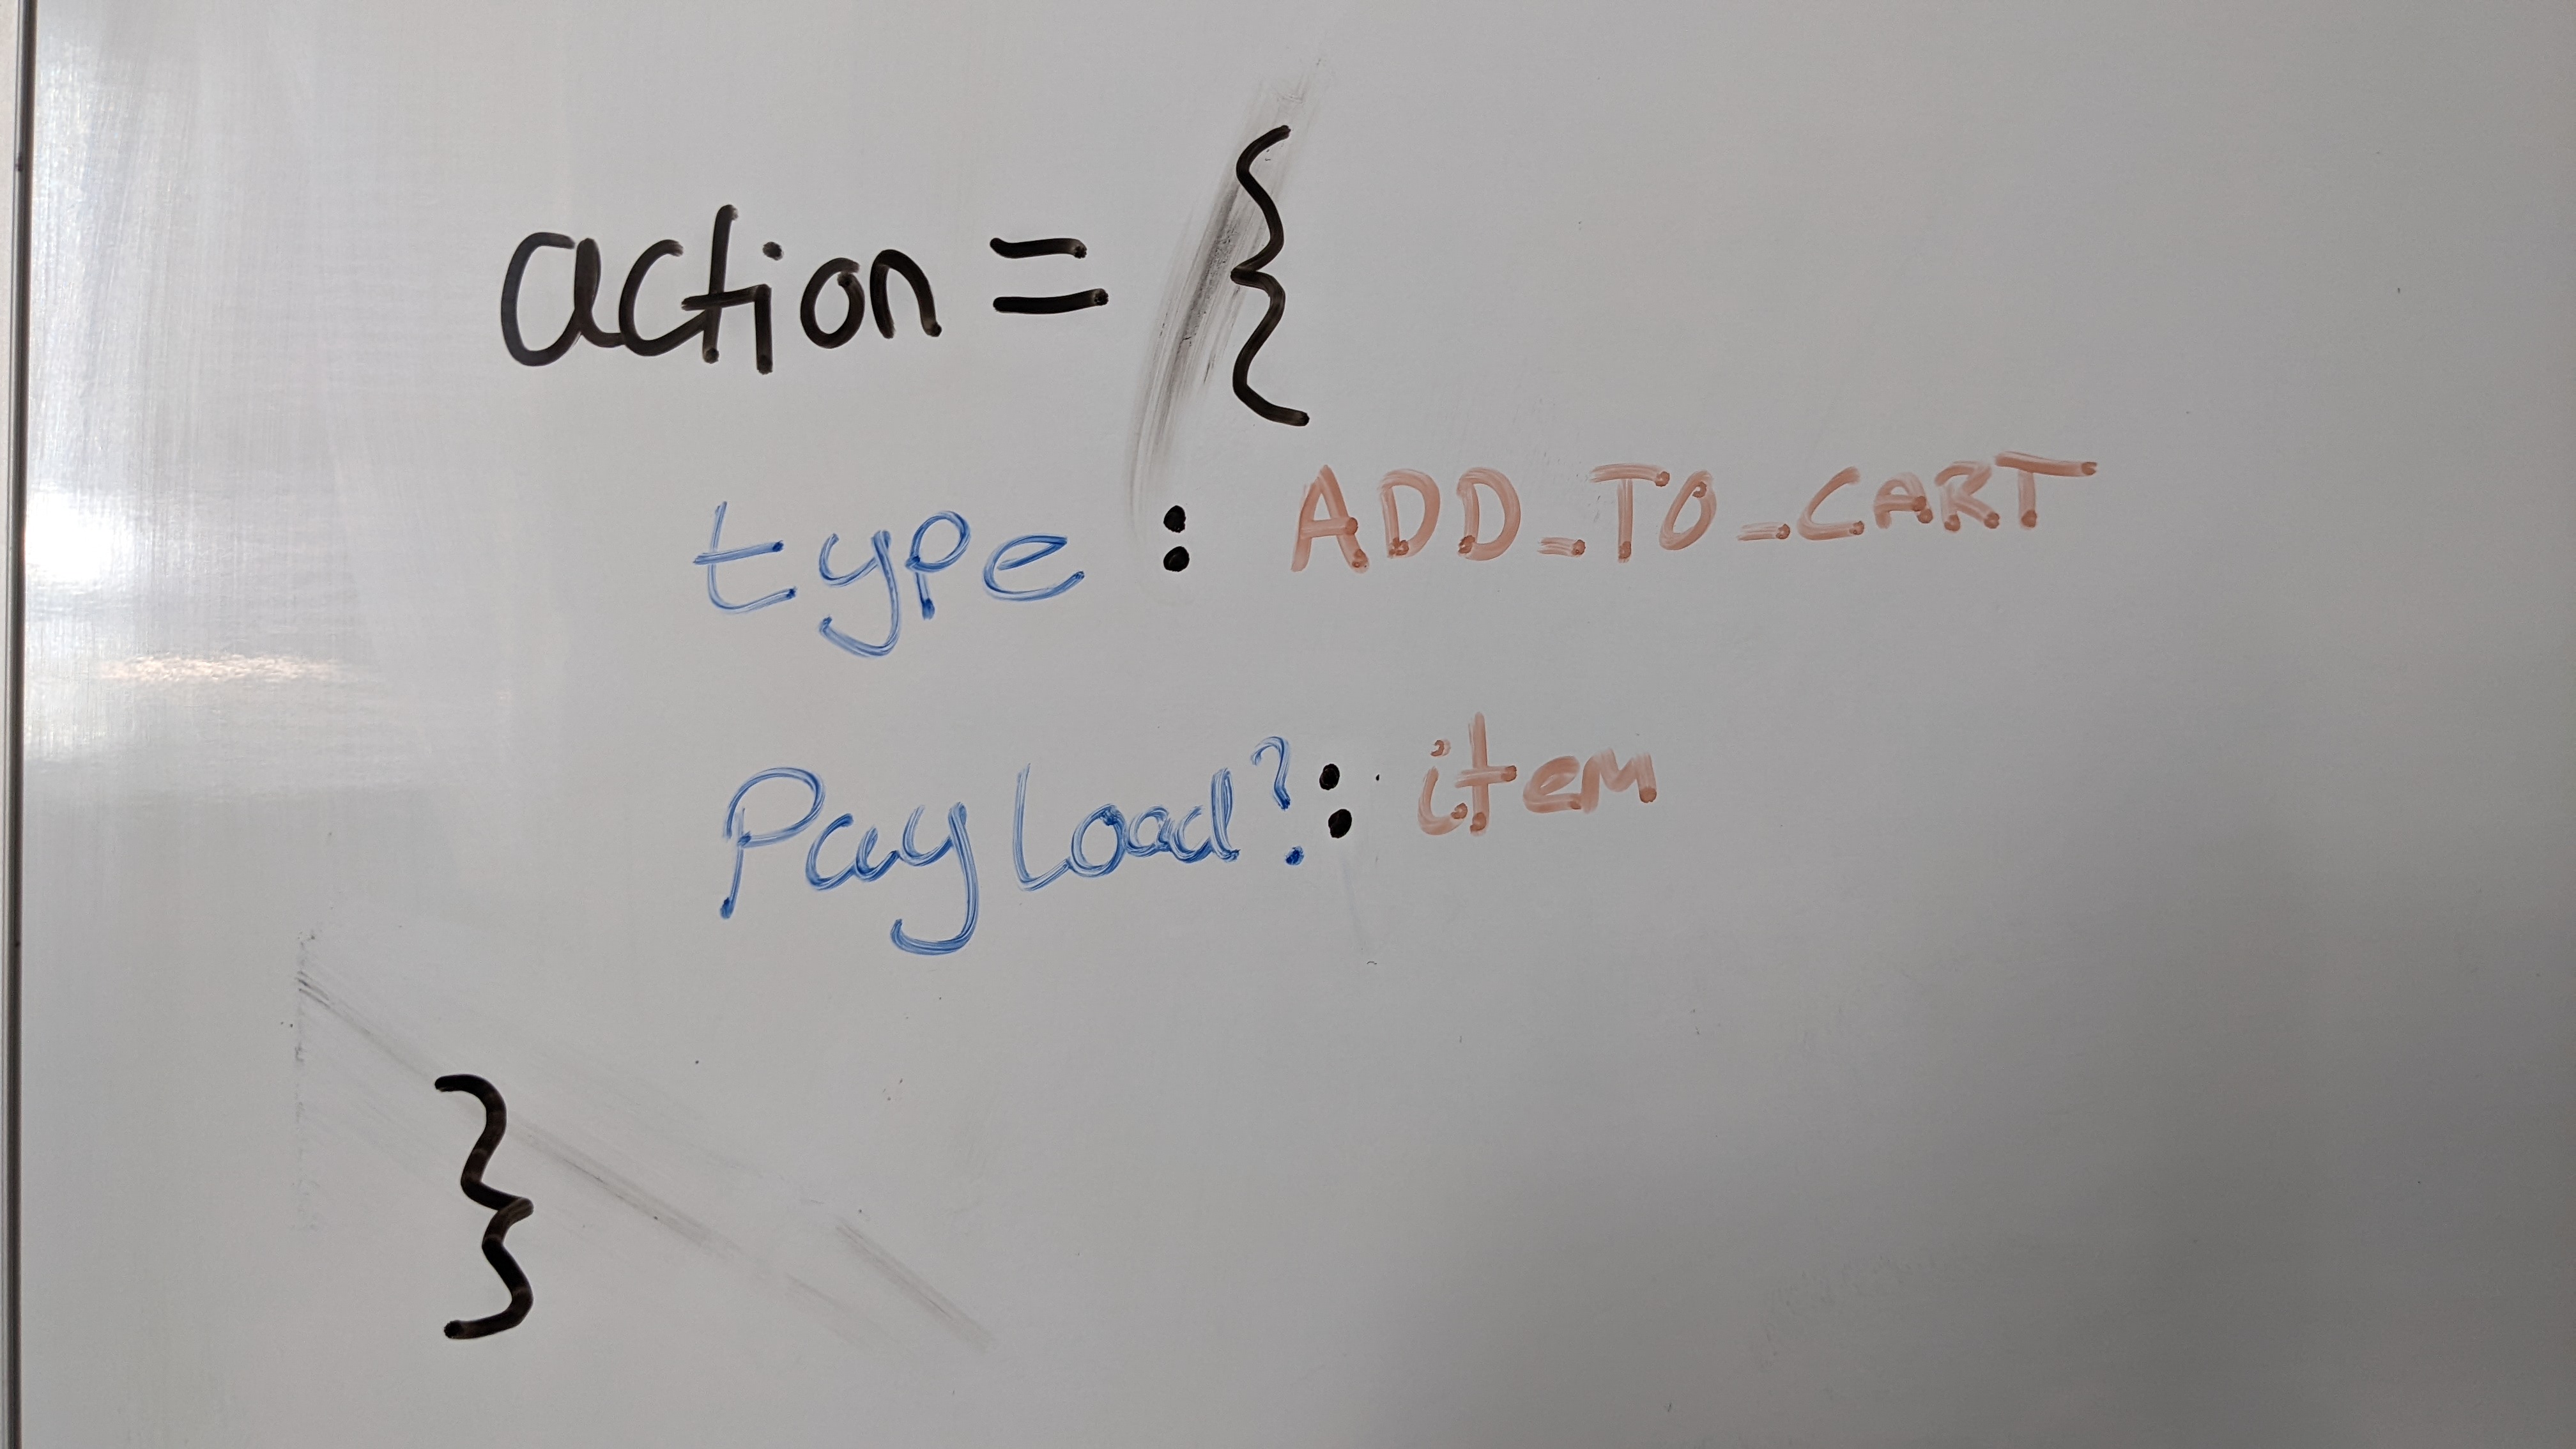 action = {
type : ADD_TO_CART
Payload? : item
}